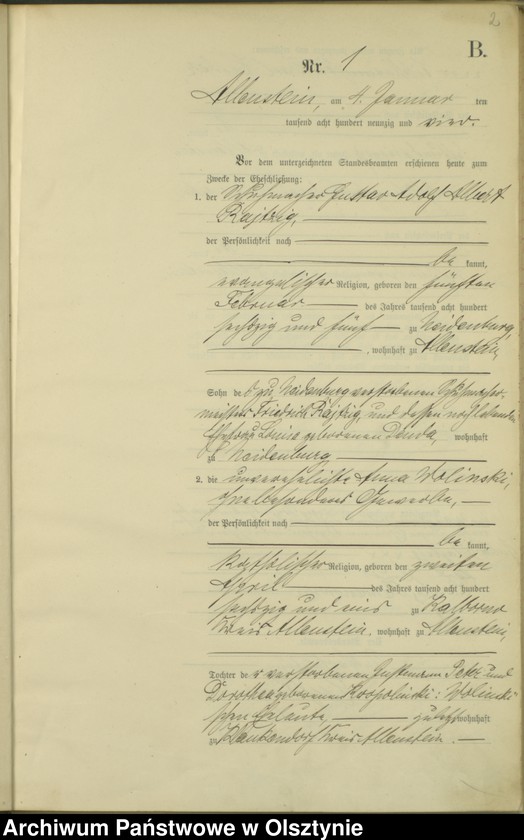 2
B.
Nr. 1
Allenstein, am 4. Januar ten
tausend acht hundert neunzig und vier.
Vor dem unterzeichneten Standesbeamten erschienen heute zum
Zwecke der Eheschließung:
1. der Schuhmacher Gustav Adolf Albert
der Persönlichkeit nach
be kannt,
evangelischer Religion, geboren den fünften
Februar des Jahres tausend acht hundert
sechzig und fünf zu Neidenburg,
, wohnhaft zu Allenstein,
Sohn de s zu Neidenburg verstorbenen Schuhmacher-
meisters Friedrich und dessen nochlebenden
Ehefrau geborenen wohnhaft
zu Neidenburg
2. die unverehelichte Anna Wolinski,
ohne besonderes Gewerbe,
der Persönlichkeit nach
be kannt,
katholischer Religion, geboren den zweiten
April des Jahres tausend acht hundert
sechzig und eins zu Kalborno
Kreis Allenstein, wohnhaft zu Allenstein,
Tochter de r verstorbenen Instmann und
Dorothea geborenen Wolinski
schen Eheleute, zuletzt wohnhaft
zu Kreis Allenstein.
Archiwum Państwowe w Olsztynie